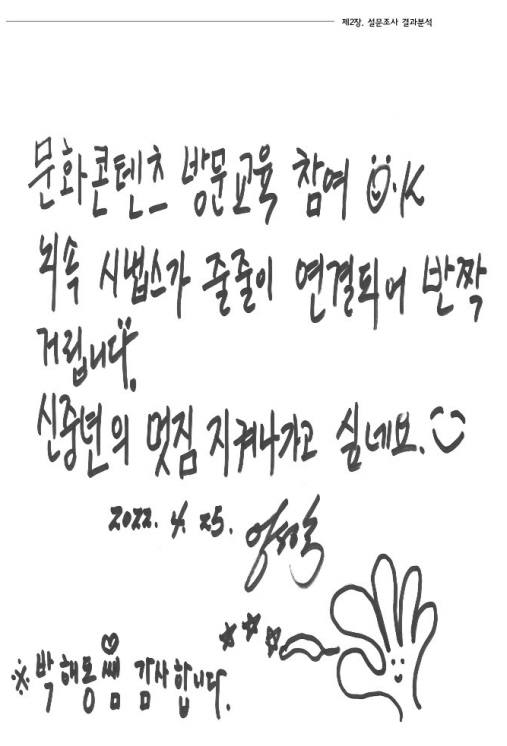 제2장. 설문조사 결과분석
문화콘텐츠 방문교육 참여 O.K
뇌속 시냅스가 줄줄이 연결되어 반짝
거립니다.
신중년의 멋짐 지켜나가고 싶네요.
2022. 4. 25.
※ 박해동쌤 감사합니다.